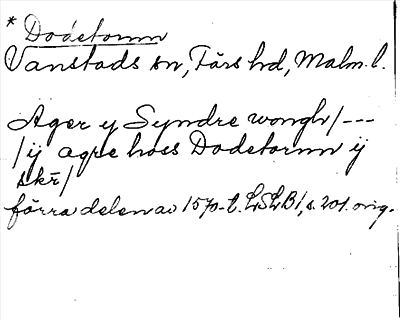 * Dodetornn
Vanstads sn, Färs hd, Malm. l.
Ager y Syndre wongh /---
/ ij agre hoes Dodetornn ij
skr̄ /
förra delen av 1570-t. LSLB1, s. 201. orig.